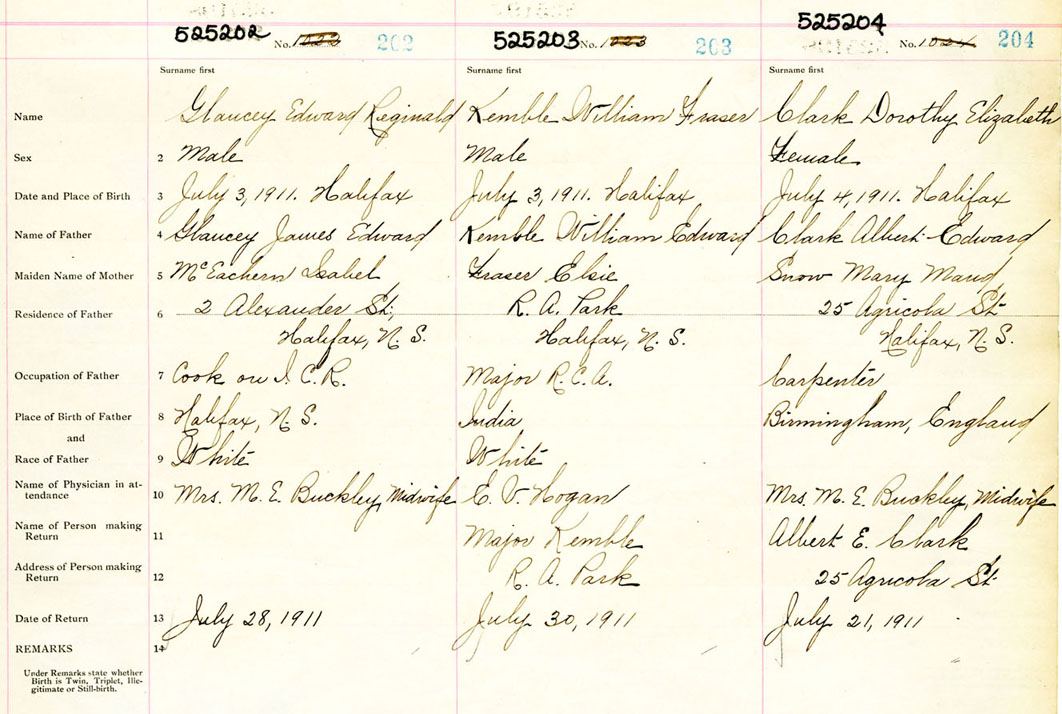 525202 No. 202 525203 No. 203 525204 No. 204
Surname first Surname first Surname first
Name Glaucey Edward Reginald Kemble William Fraser Clark Dorothy Elizabeth
Sex 2 Male Male Female
Date and Place of Birth 3 July 3, 1911. Halifax July 3, 1911. Halifax July 4, 1911. Halifax
Name of Father 4 Glaucey James Edward Kemble William Edward Clark Albert Edward
Maiden Name of Mother 5 McEachern Isabel Fraser Elsie Snow Mary Maud
Residence of Father 6 2 Alexander St., R. A. Park 25 Agricola St.
Halifax, N. S. Halifax, N. S. Halifax, N. S.
Occupation of Father 7 Cook on I. C. R. Major R. C. A. Carpenter
Place of Birth of Father 8 Halifax, N. S. India Birmingham, England
and
Race of Father 9 White White
Name of Physician in at-
tendance 10 Mrs. M. E. Buckley, Midwife E. V. Hogan Mrs. M. E. Buckley, Midwife
Name of Person making
Return 11 Major Kemble Albert E. Clark
Address of Person making
Return 12 R. A. Park 25 Agricola St.
Date of Return 13 July 28, 1911 July 30, 1911 July 21, 1911
REMARKS 14
Under Remarks state whether
Birth is Twin, Triplet, Ille-
gitimate or Still-birth.